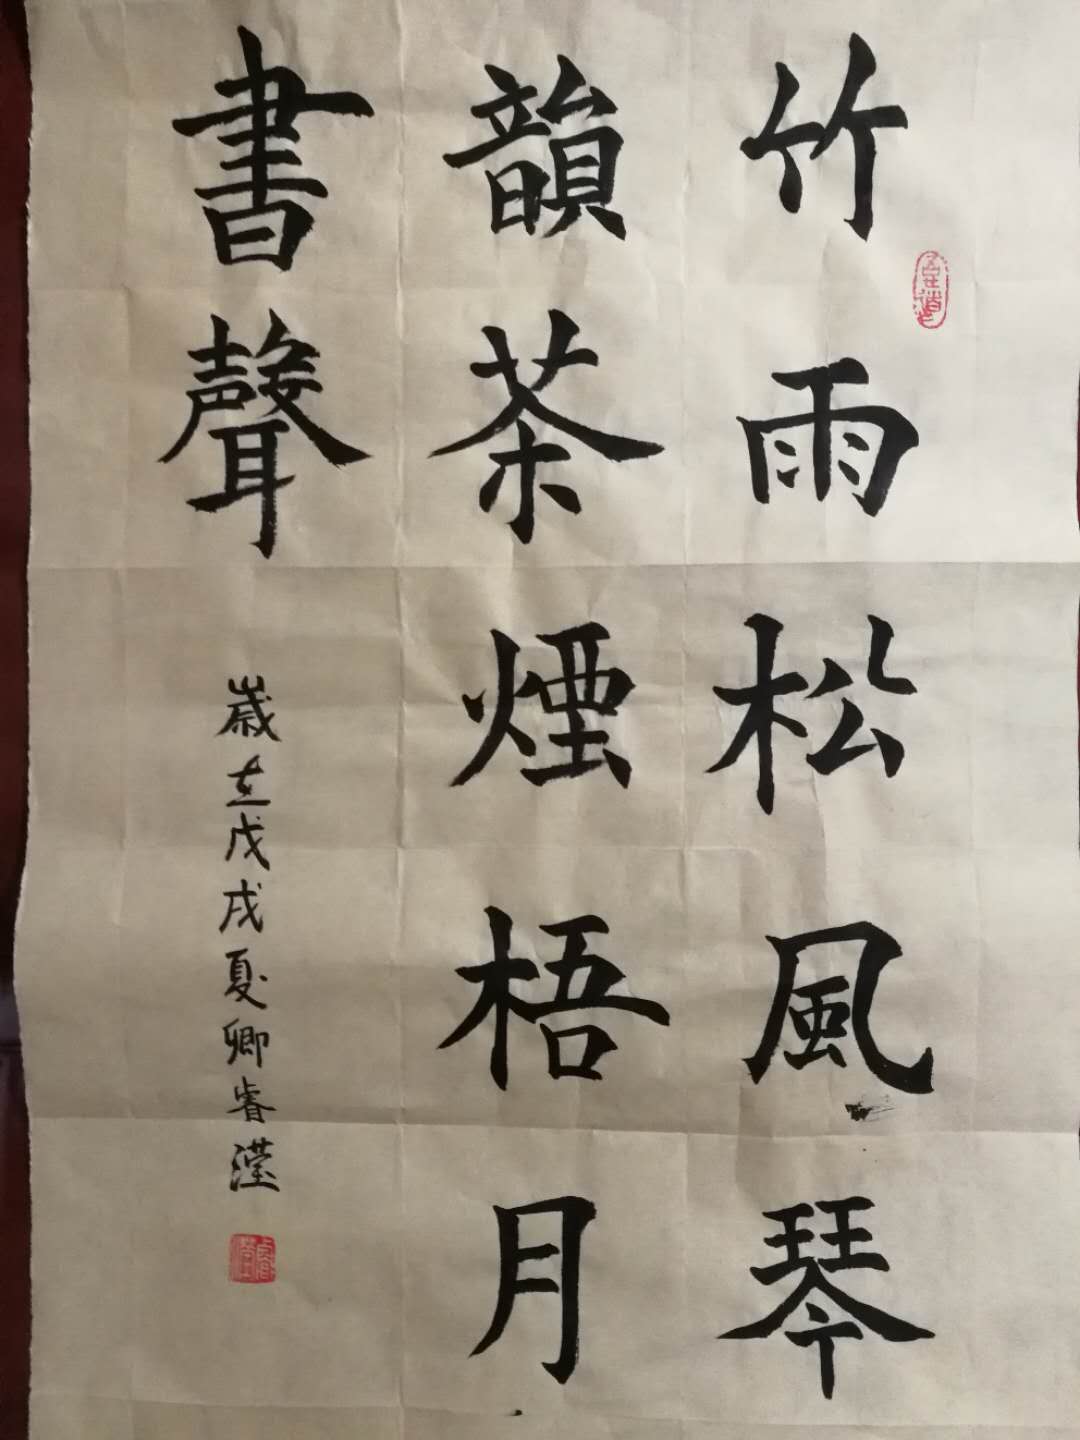 竹雨松風琴
韻茶煙梧月
書聲
歲在戊戌夏卿睿滢